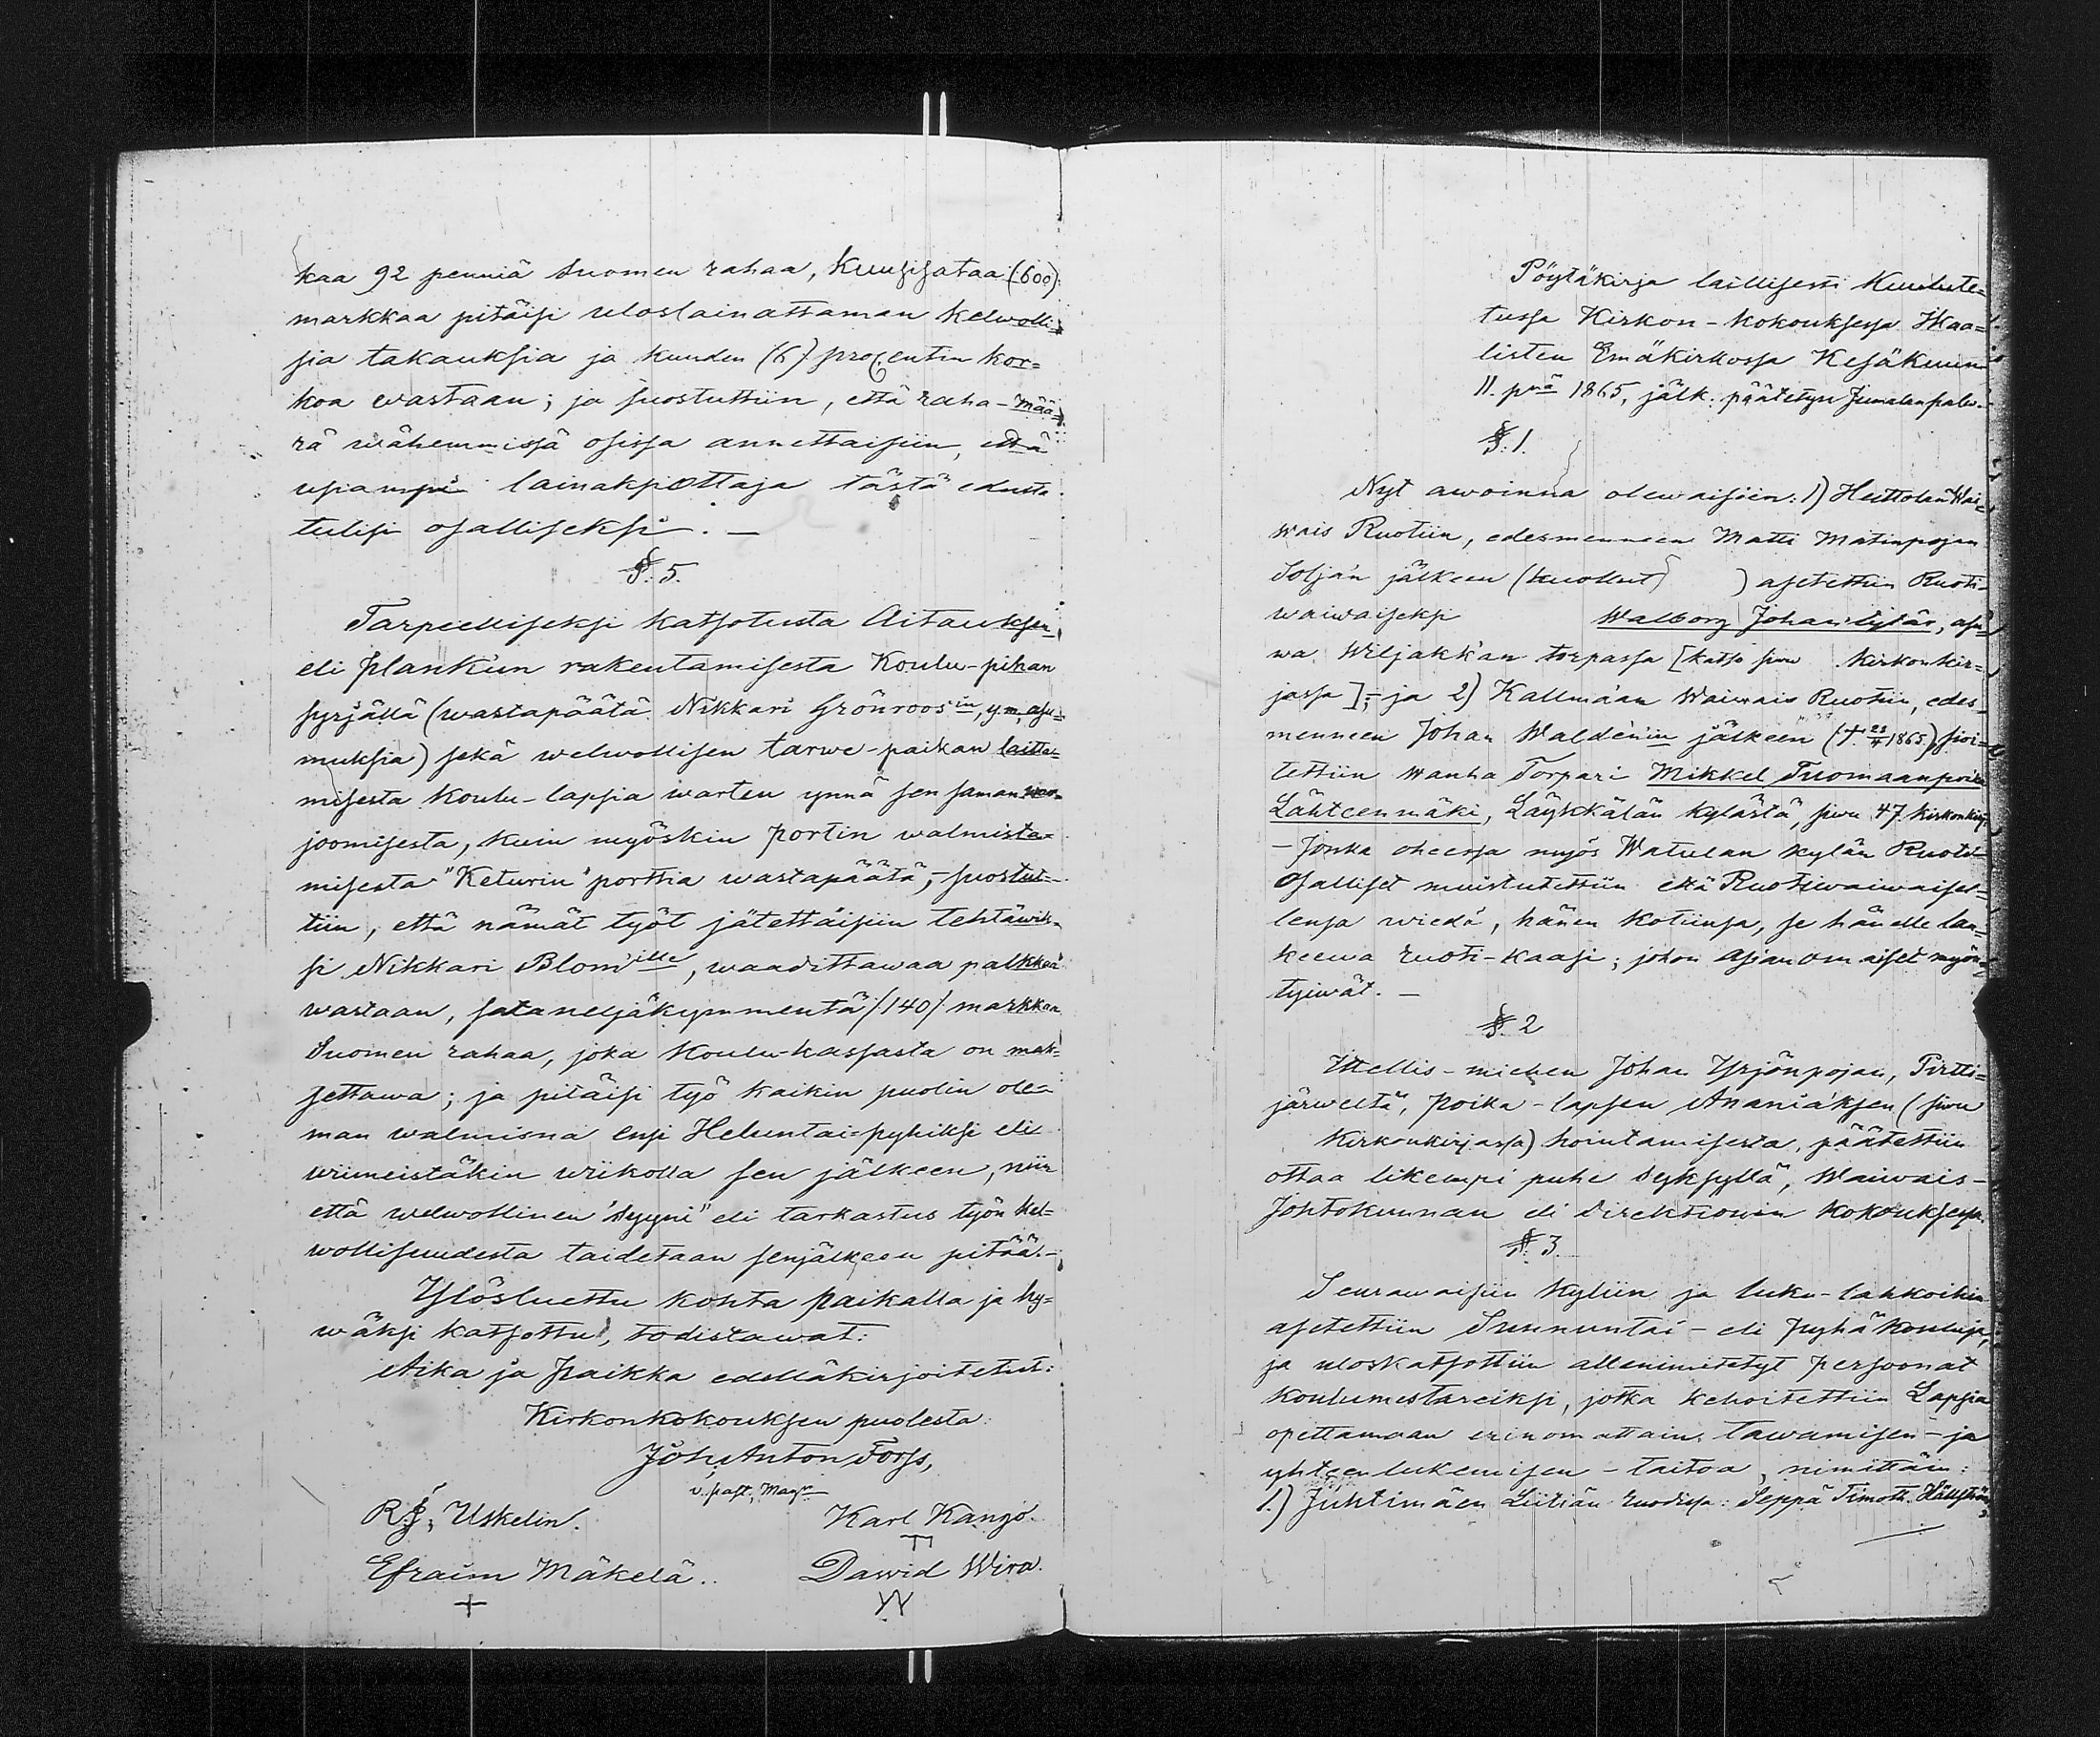 kaa 92 penniä Suomen rahaa, Kuusisataa (600)
markkaa pitäisi uloslainattaman kelwolli=
sia takauksia ja kuuden (6) procentin kor=
koa wastaan; ja suostuttiin, että raha-mää=
rä wähemmissä osissa annettaisiin, että
usiampi lainakpottaja tästä edusta
tulisi osalliseksi. —
§. 5.
Tarpeelliseksi katsotusta Aitauksen
eli plankiin rakentamisesta Koulu-pihan
syrjällä (wastapäätä Nikkari Grönroos'in, y.m. asu=
muksia) sekä welwollisen tarwe-paikan laitta=
misesta Koulu-lapsia warten ynnä sen saman
joomisesta, kuin myöskin portin walmista=
misesta "Keturin" porttia wastapäätä,- suostut=
tiin, että nämät työt jätettäisiin tehtäwik=
si Nikkari Blom'ille, waadittawaa palkkaa
wastaan, sataneljäkymmentä (140) markkaa
Suomen rahaa, joka Koulu-kassasta on mak=
settawa; ja pitäisi työ kaikin puolin ole=
man walmisna ensi Heluntai=pyhiksi eli
wiimeistäkin wiikolla sen jälkeen, niin
että welwollinen "Syyni" eli tarkastus työn kel=
wollisuudesta taidetaan senjälkeen pitää.-
Ylösluettu kohta paikalla ja hy=
wäksi katsottu, todistawat:
Aika ja paikka edelläkirjoitetut:
Kirkonkokouksen puolesta:
Joh. Anton Forss,
v. past., Mag.
R. J. Uskelin. Karl Kangò.
Efraim Mäkelä. Dawid Wira.
Pöytäkirja laillisesti Kuulute=
tussa Kirkon-kokouksessa Ikaa=
listen Emäkirkossa Kesäkuun
11. pnä 1865, jälk. päätetyn Jumalanpalw.
§. 1.
Nyt awoinna olewaisiin: 1) Heittolan Wai=
wais Ruotiin, edesmenneen Matti Matinpojan
Soljan jälkeen (kuollut ) asetettiin Ruoti=
waiwaiseksi Walborg Johantytär, asu=
wa Wiljakk'an torpassa [katso siwu Kirkonkir=
jassa];- ja 2) Kallmaan Waiwais Ruotiin, edes=
menneen Johan Waldén'in jälkeen (†. 23/4 1865) sioi=
tettiin wanha Torpari Mikkel Tuomaanpoika
Lähteenmäki, Läykkälän kylästä, siwu 47. kirkonkirj.
- Jonka oheessa myös Watulan kylän Ruoti=
Osalliset muistutettiin että Ruotiwaiwaisel=
lensa wiedä, hänen kotiinsa, se hänelle lan=
keewa ruoti-kaasi; johon Asianomaiset myön=
tyiwät. —
§. 2
Ittellis-miehen Johan Yrjönpojan, Pirtti=
järweltä, poika-lapsen Ananiáksen (siwu
Kirkonkirjassa) hointamisesta, päätettiin
ottaa likempi puhe Syksyllä, Waiwais-
Johtokunnan eli Direktionin kokouksessa.
§. 3.
Seurawaisiin Kyliin ja luku-lahkoihin
asetettiin Sunnuntai- eli Pyhäkouluja,
ja uloskatsottiin allenimitetyt persoonat
koulumestareiksi, jotka kehoitettiin Lapsia
opettamaan erinomattain tawamisen- ja
yhteenlukemisen-taitoa, nimittäin:
1.) Juhtimäen Liitiän ruodissa: Seppä Timoth. Hällström,